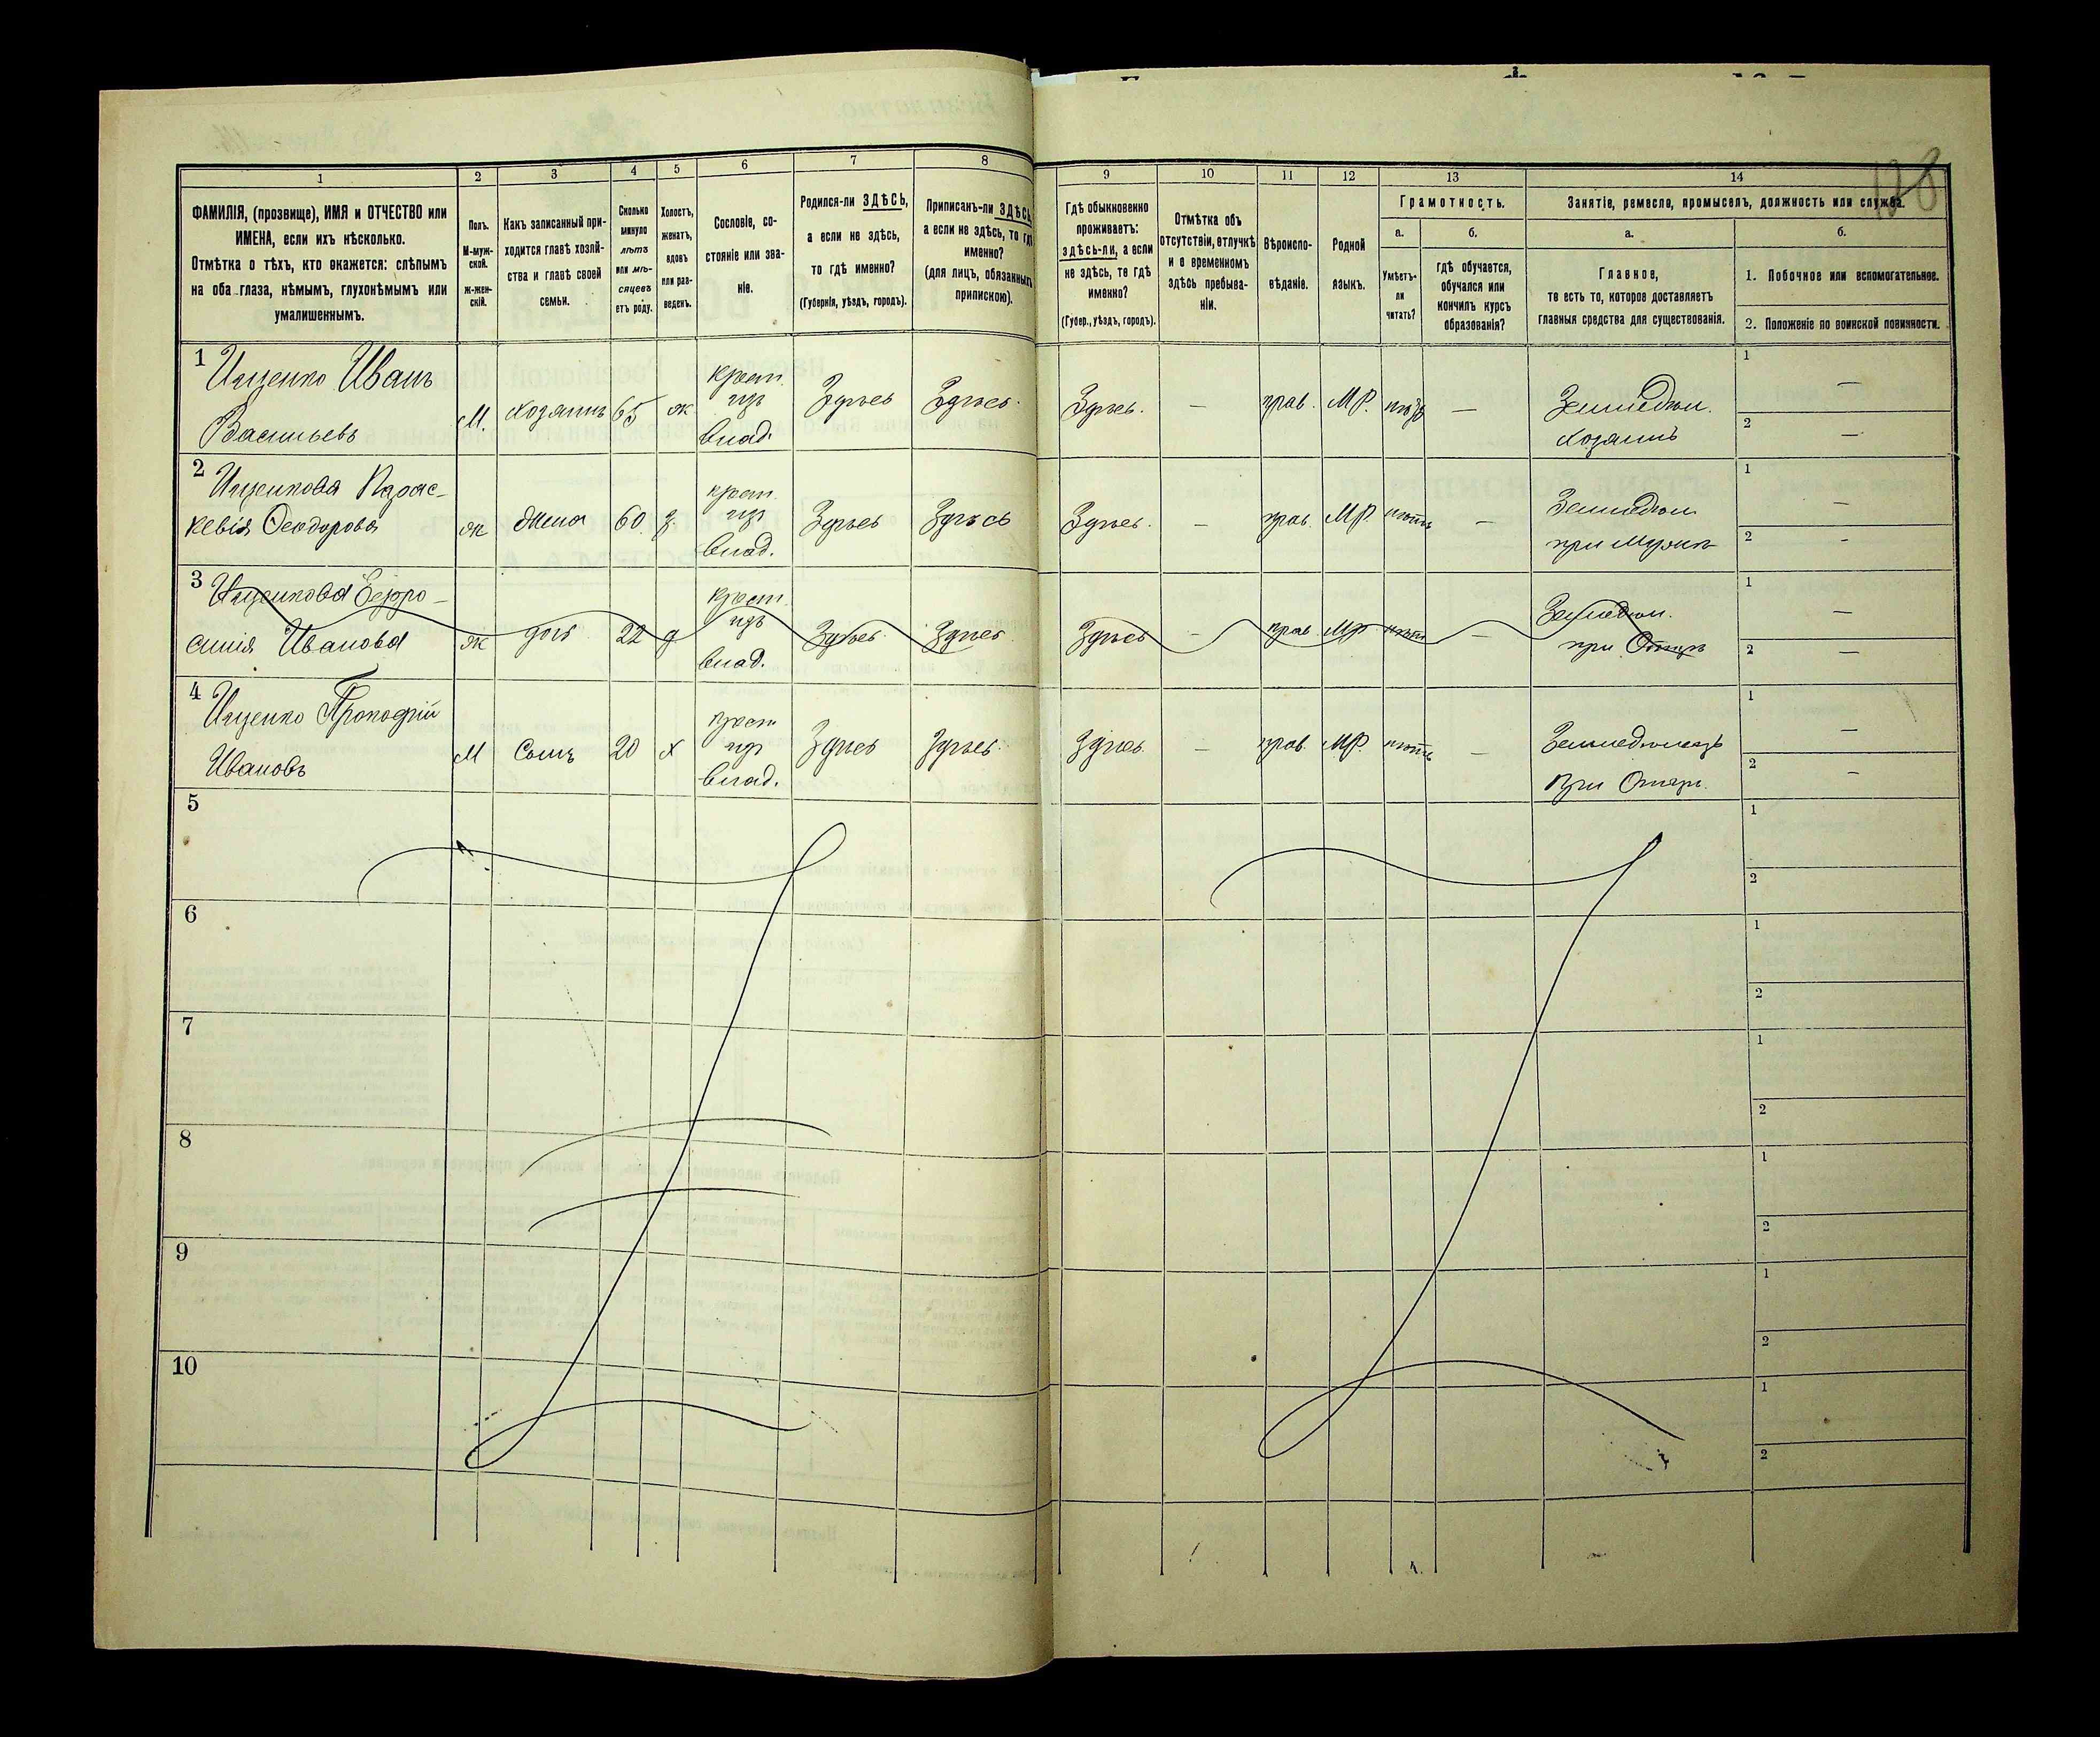 128
1 2 3 4 5 6 7 8 9 10 11 12 13 14
ФАМИЛІЯ, (прозвище), ИМЯ и ОТЧЕСТВО или
ИМЕНА, если ихъ нѣсколько.
Отмѣтка о тѣхъ, кто окажется: слѣпымъ
на оба глаза, нѣмымъ, глухонѣмымъ или
умалишеннымъ.
Полъ.
М-муж-
ской.
ж-жен-
скій.
Какъ записанный при-
ходится главѣ хозяй-
ства и главѣ своей
семьи.
Сколько
минуло
лѣтъ
или мѣ-
сяцевъ
отъ роду.
Холостъ,
женатъ,
вдовъ
или раз-
веденъ.
Сословіе, со-
стояніе или зва-
ніе.
Родился-ли ЗДѢСЬ,
а если не здѣсь,
то гдѣ именно?
(Губернія, уѣздъ, городъ).
Приписанъ-ли ЗДѢСЬ,
а если не здѣсь, то гдѣ
именно?
(для лицъ, обязанныхъ
припискою).
Гдѣ обыкновенно
проживаетъ:
здѣсь-ли, а если
не здѣсь, то гдѣ
именно?
(Губер., уѣздъ, городъ).
Отмѣтка объ
отсутствіи, отлучкѣ
и о временномъ
здѣсь пребыва-
ніи.
Вѣроиспо-
вѣданіе.
Родной
языкъ.
Грамотность.
а.
Умѣетъ-
ли
читать?
б.
гдѣ обучается,
обучался или
кончилъ курсъ
образованія?
Занятіе, ремесло, промыселъ, должность или служба.
а.
Главное,
то есть то, которое доставляетъ
главныя средства для существованія.
б.
1. Побочное или вспомогательное.
2. Положеніе по воинской повинности.
1 Ищенко Иванъ
Васильевъ
М. Хозяинъ 65 ж
крест.
изъ
влад.
Здѣсь Здѣсь. Здѣсь. — прав. МР. нѣтъ —
Земледѣл.
Хозяинъ
1 —
2 —
2 Ищенкова Парас-
кевія Ѳеодорова
ж Жена 60. з.
крест.
изъ
влад.
Здѣсь Здѣсь Здѣсь. — прав. МР. нѣтъ —
Земледѣл
при Мужѣ
1 —
2 -
3 Ищенкова Евфро-
синія Иванова
ж дочь 22 д
крест.
изъ
влад.
Здѣсь. Здѣсь. Здѣсь — прав. МР нѣтъ —
Земледѣл.
при Отцѣ
1 —
2 —
4 Ищенко Прокофій
Ивановъ
М Сынъ 20 х
крест
изъ
влад.
Здѣсь Здѣсь. Здѣсь. — прав. МР. нѣтъ —
Земледѣлецъ
При Отцѣ.
1 —
2 —
5 1
2
6 1
2
7 1
2
8 1
2
9 1
2
10 1
2